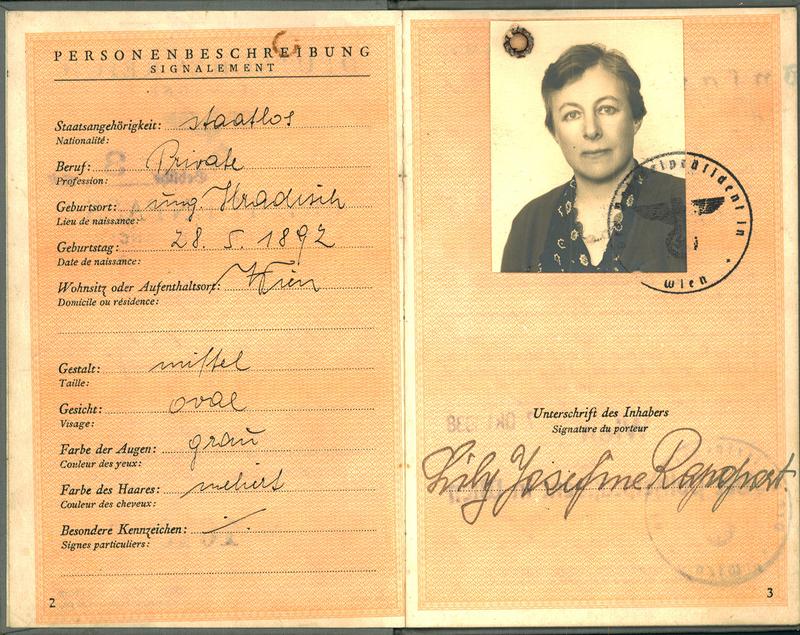 PERSONENBESCHREIBUNG
SIGNALEMENT
Staatsangehörigkeit: staatlos
Nationalité:
Beruf: Private
Profession:
Geburtsort: ung Hradisch
Lieu de naissance:
Geburtstag: 28. 5. 1892
Date de naissance:
Wohnsitz oder Aufenthaltsort: Wien
Domicile ou résidence:
Gestalt: mittel
Taille:
Gesicht: oval
Visage:
Farbe der Augen: grau
Couleur des yeux:
Farbe des Haares: meliert
Couleur des cheveux:
Besondere Kennzeichen: ./.
Signes particuliers:
2
präsident in
Wien
Unterschrift des Inhabers
Signature du porteur
Lily Josefine Rapoport
3